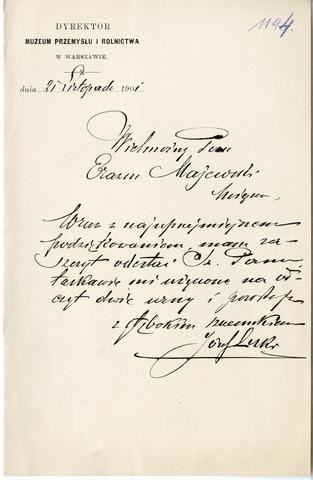 1194.
DYREKTOR
MUZEUM PRZEMYSŁU I ROLNICTWA
W WARSZAWIE.
dnia 25 Listopada 1901
Wielmożny Pan
Erazm Majewski
w miejscu
Wraz z najuprzejmiejszem
podziękowaniem, mam za-
szczyt odesłać Sz. Panu
łaskawie mi użyczone na od-
czyt dwie urny i pozostaję
z głębokim szacunkiem
Józef Leski